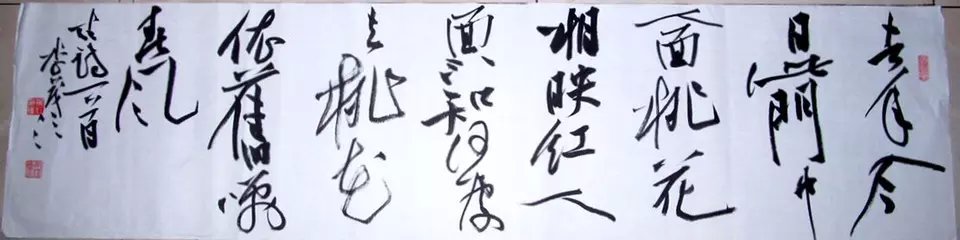 去年今
日此門中
人面桃花
相映红人
面不知何處
去桃花
依舊咲
春风
古詩一首